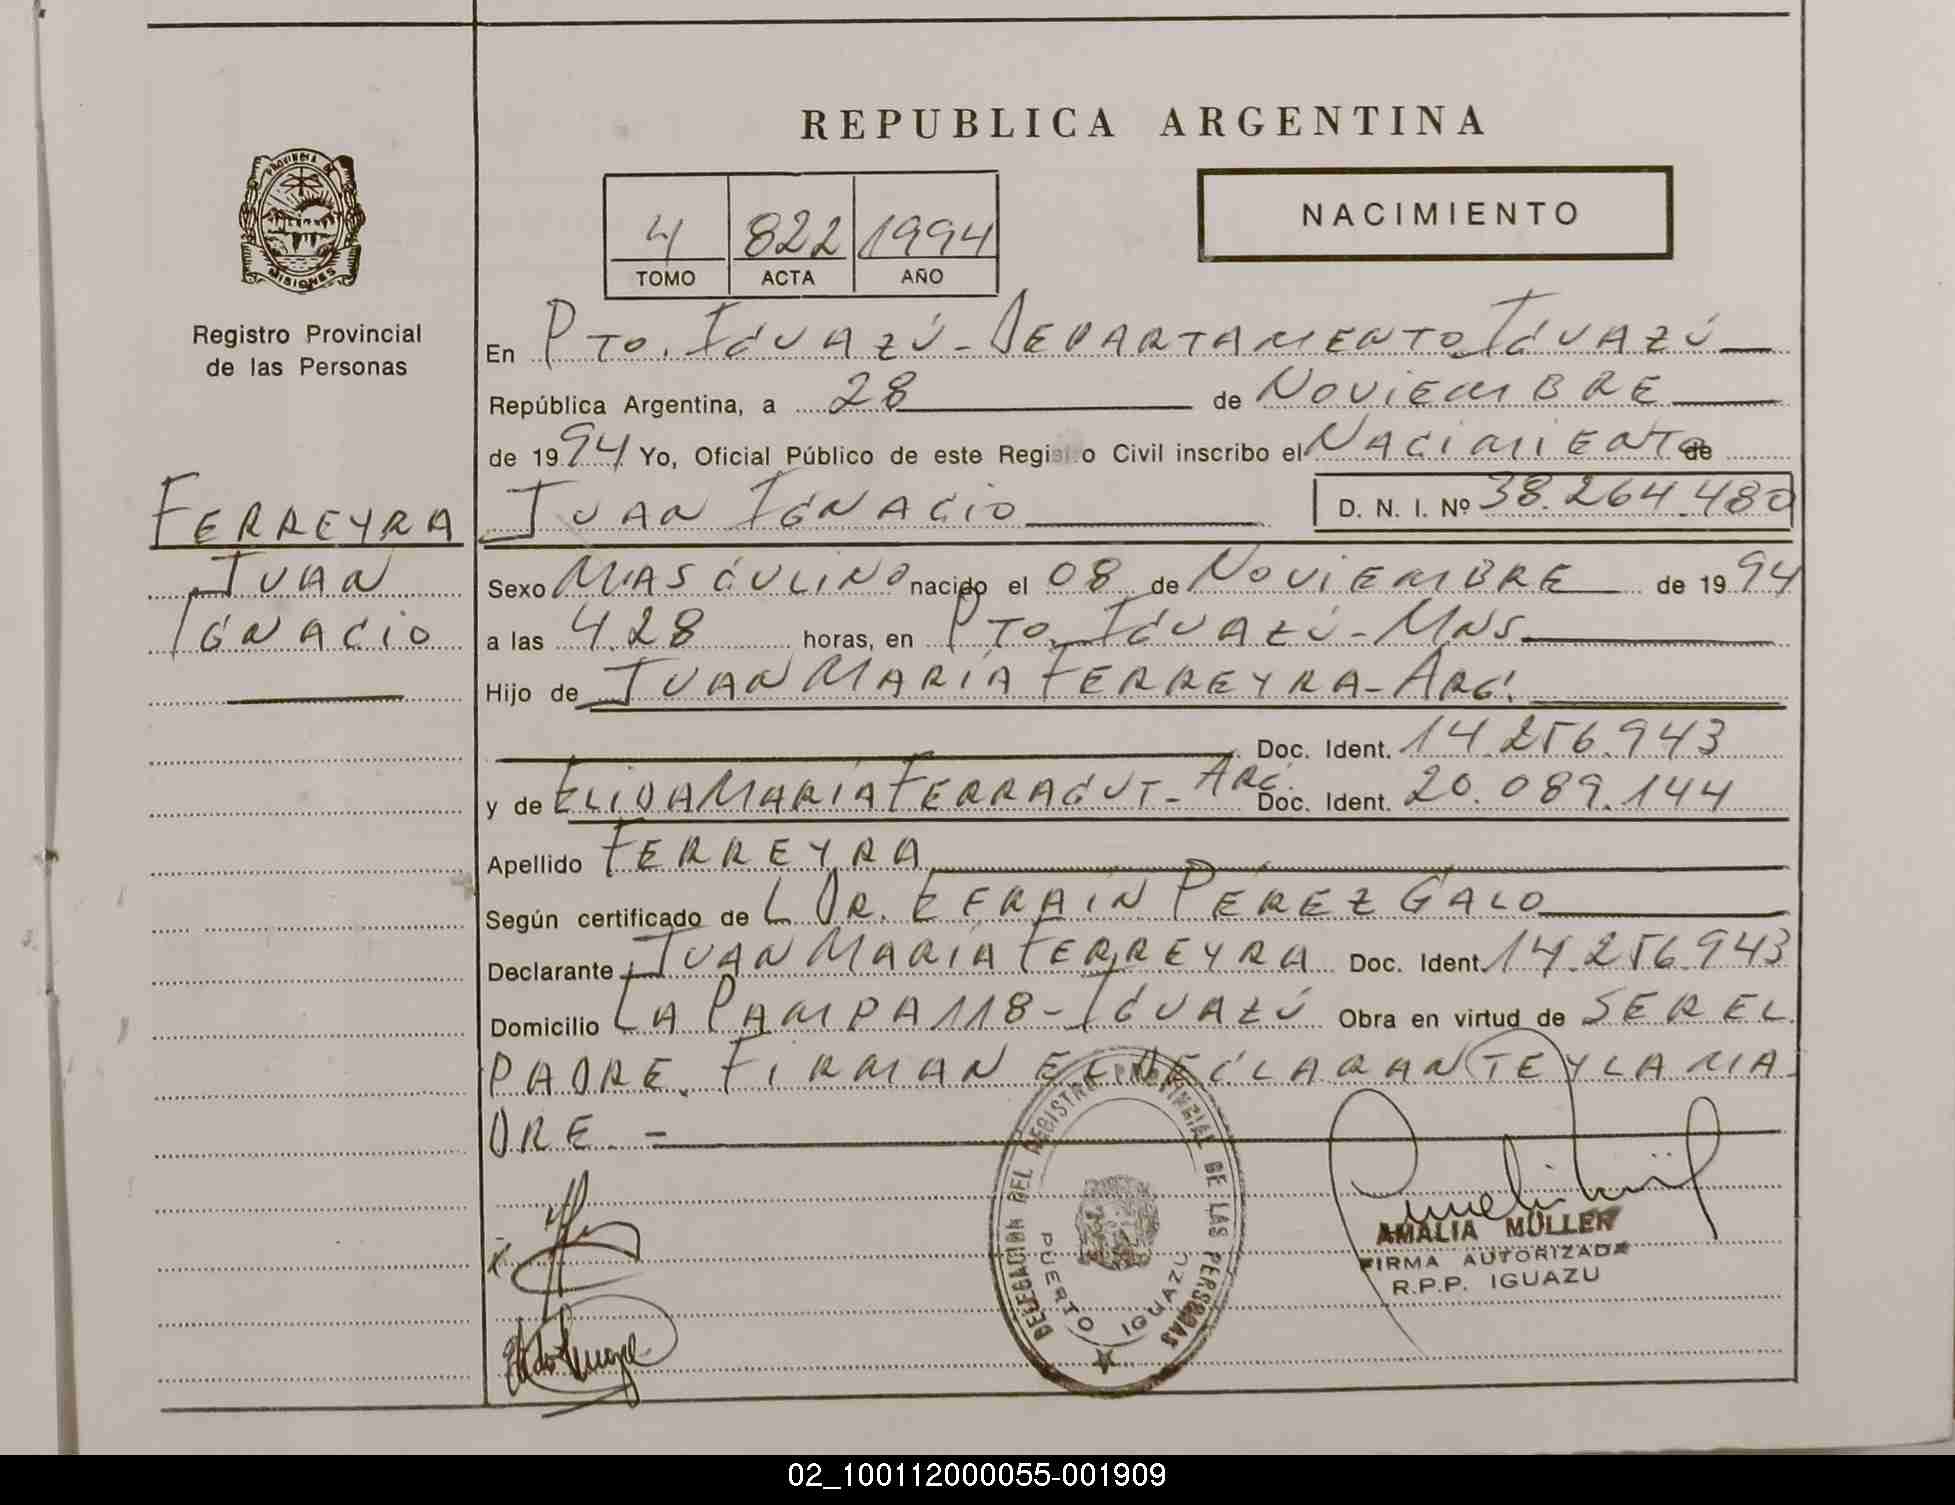 REPUBLICA ARGENTINA
PROVINCIA DE
MISIONES
Registro Provincial
de las Personas
4 822 1994
TOMO ACTA AÑO
NACIMIENTO
En PTO. IGUAZÚ - DEPARTAMENTO IGUAZÚ
República Argentina, a 28 de NOVIEMBRE
de 1994 Yo, Oficial Público de este Registro Civil inscribo el NACIMIENTO de
JUAN IGNACIO D. N. I. Nº 38.264.480
FERREYRA
JUAN
IGNACIO
Sexo MASCULINO nacido el 08 de NOVIEMBRE de 1994
a las 4.28 horas, en PTO. IGUAZÚ - MNS
Hijo de JUAN MARÍA FERREYRA - ARG.
Doc. Ident. 14.256.943
y de ELIDA MARÍA FERRAGUT - ARG. Doc. Ident. 20.089.144
Apellido FERREYRA
Según certificado de L DR. EFRAÍN PÉREZ GALO
Declarante JUAN MARÍA FERREYRA Doc. Ident. 14.256.943
Domicilio LA PAMPA 118 - IGUAZÚ Obra en virtud de SER EL
PADRE. FIRMAN EL DECLARANTE Y LA MA
DRE. -
DELEGACION DEL REGISTRO PROVINCIAL DE LAS PERSONAS
PUERTO IGUAZU
AMALIA MÜLLER
FIRMA AUTORIZADA
R.P.P. IGUAZU
02_100112000055-001909